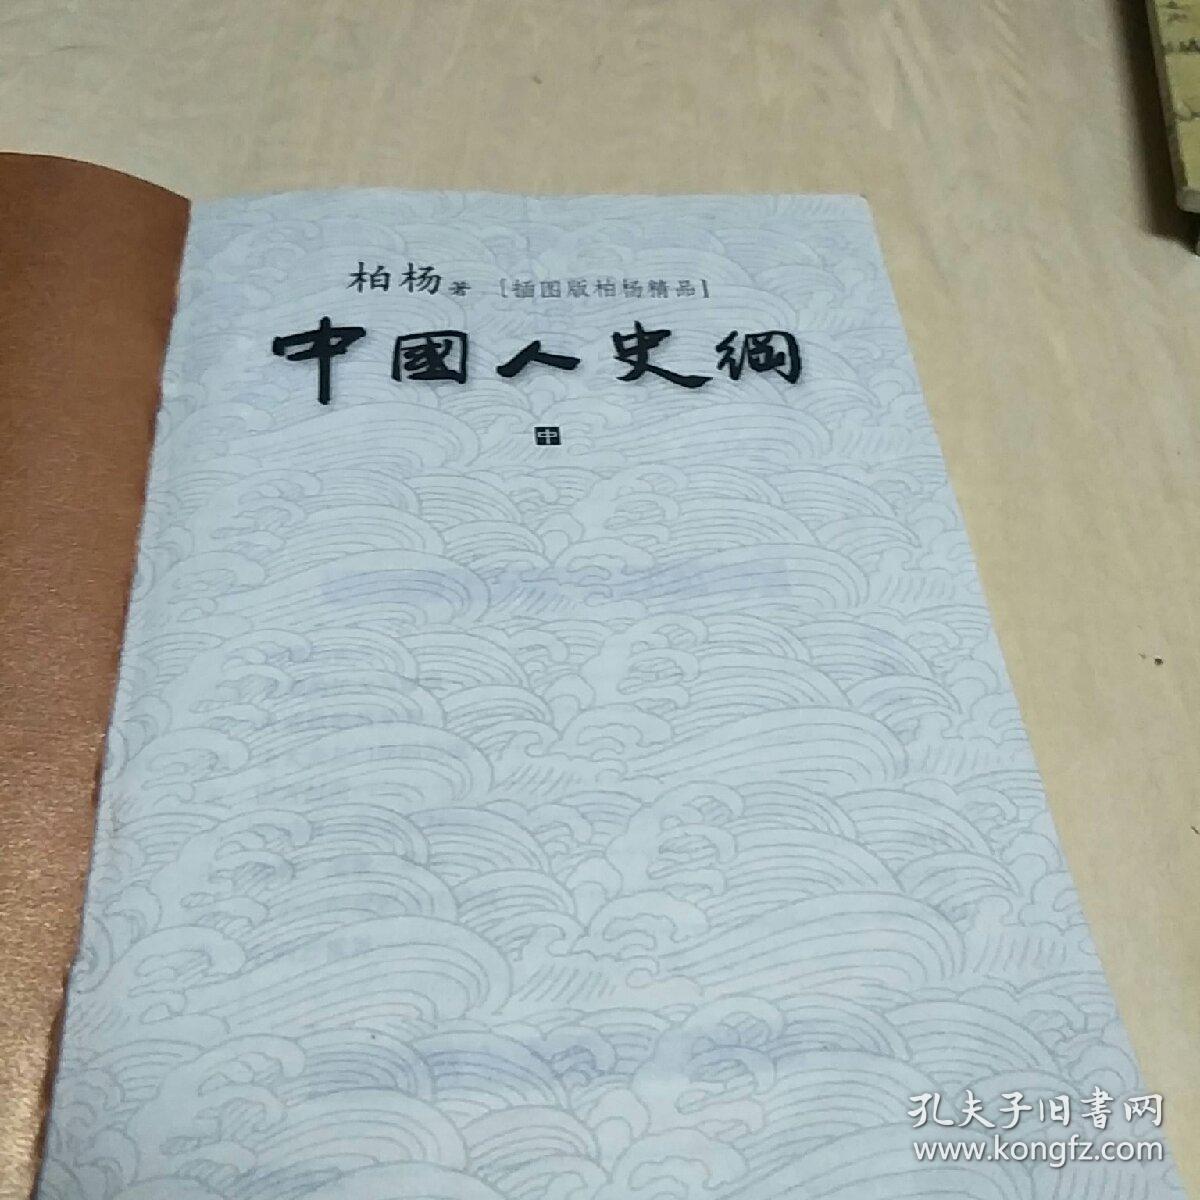 柏杨著 [插图版柏杨精品]
中國人史綱
中
孔夫子旧書网
www.kongfz.com